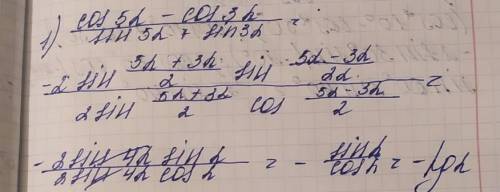 1). (cos 5α - cos 3α) / (sin 5α + sin 3α) =
(-2 sin (5α + 3α)/2 sin (5α - 3α)/2α) / (2 sin (5α + 3α)/2 cos (5α - 3α)/2) =
- (2 sin 4α sin α) / (2 sin 4α cos α) = - sin α / cos α = - tg α